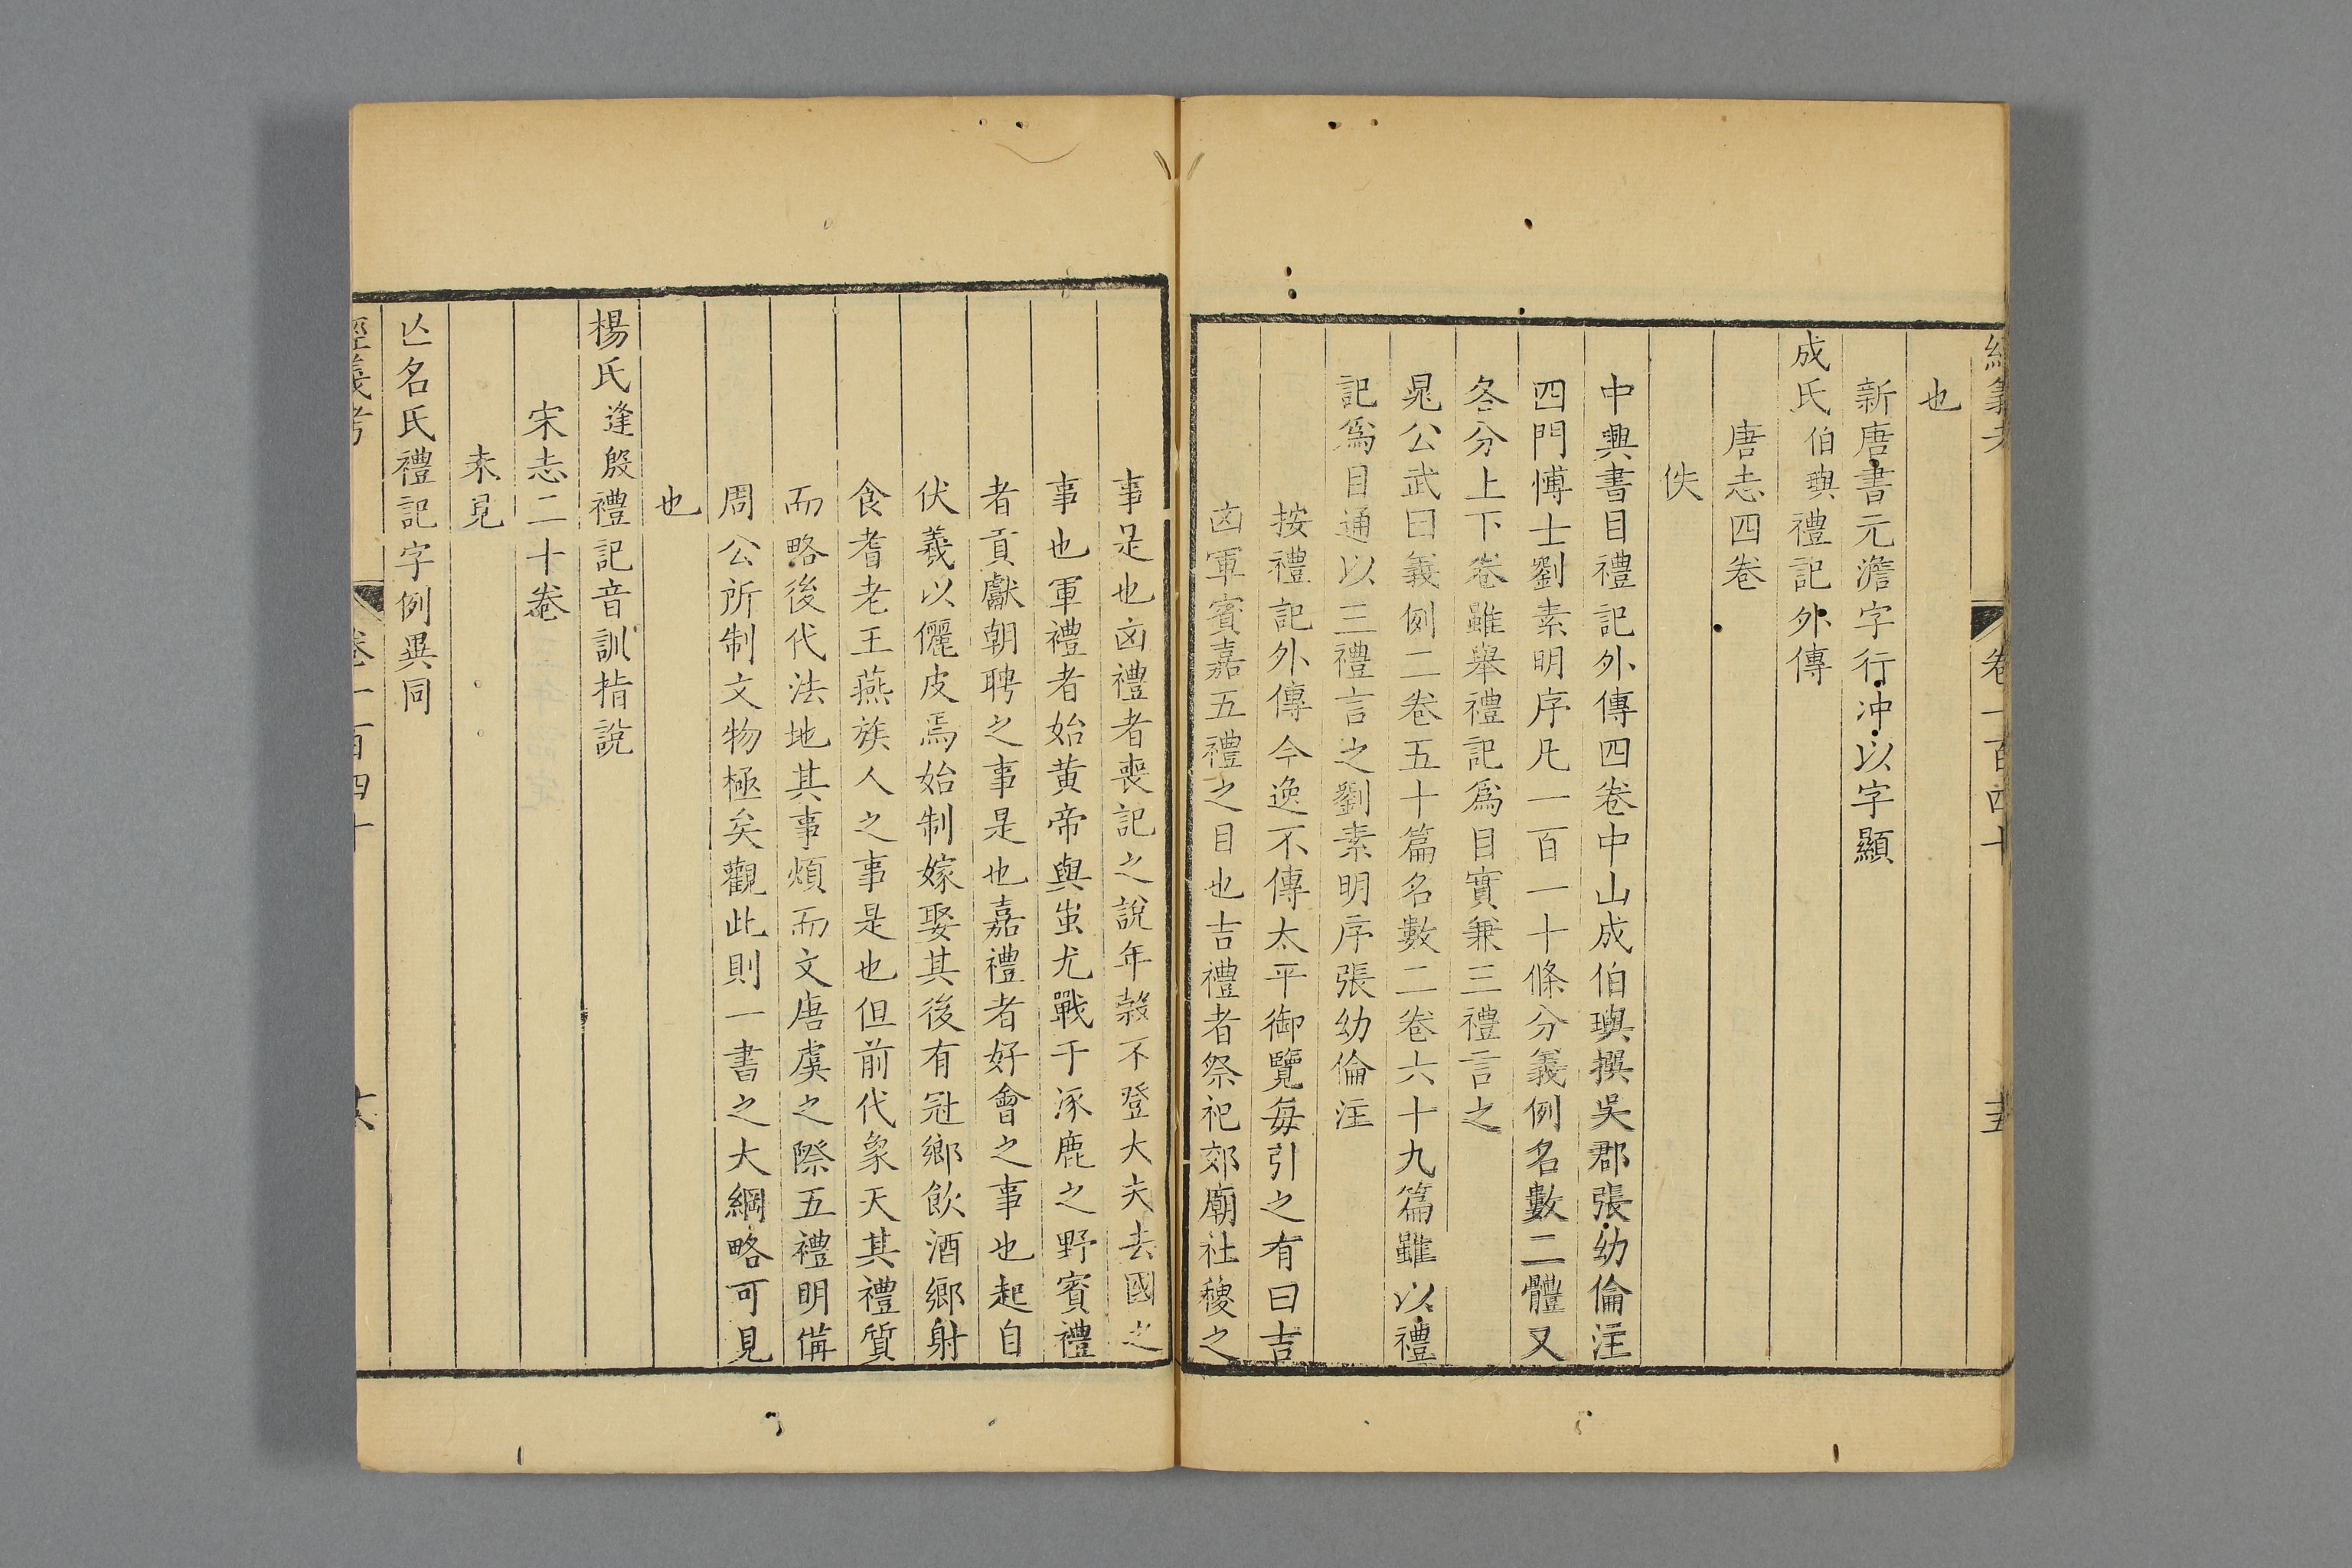 經義考 卷一百四十
也
新唐書元澹字行冲以字顯
成氏伯璵禮記外傳
唐志四卷
佚
中興書目禮記外傳四卷中山成伯璵撰吳郡張幼倫注
四門博士劉素明序凡一百一十條分義例名數二體又
各分上下卷雖舉禮記爲目實兼三禮言之
晁公武曰義例二卷五十篇名數二卷六十九篇雖以禮
記爲目通以三禮言之劉素明序張幼倫注
按禮記外傳今逸不傳太平御覽每引之有曰吉
凶軍賓嘉五禮之目也吉禮者祭祀郊廟社稷之
事是也凶禮者喪記之說年穀不登大夫去國之
事也軍禮者始黄帝與蚩尤戰于涿鹿之野賓禮
者貢獻朝聘之事是也嘉禮者好會之事也起自
伏羲以儷皮爲始制嫁娶其後有冠鄉飲酒鄉射
食耆老王燕族人之事是也但前代象天其禮質
而略後代法地其事煩而文唐虞之際五禮明備
周公所制文物極矣觀此則一書之大綱略可見
也
楊氏逢殷禮記音訓指說
宋志二十卷
未見
亡名氏禮記字例異同
經義考 卷一百四十